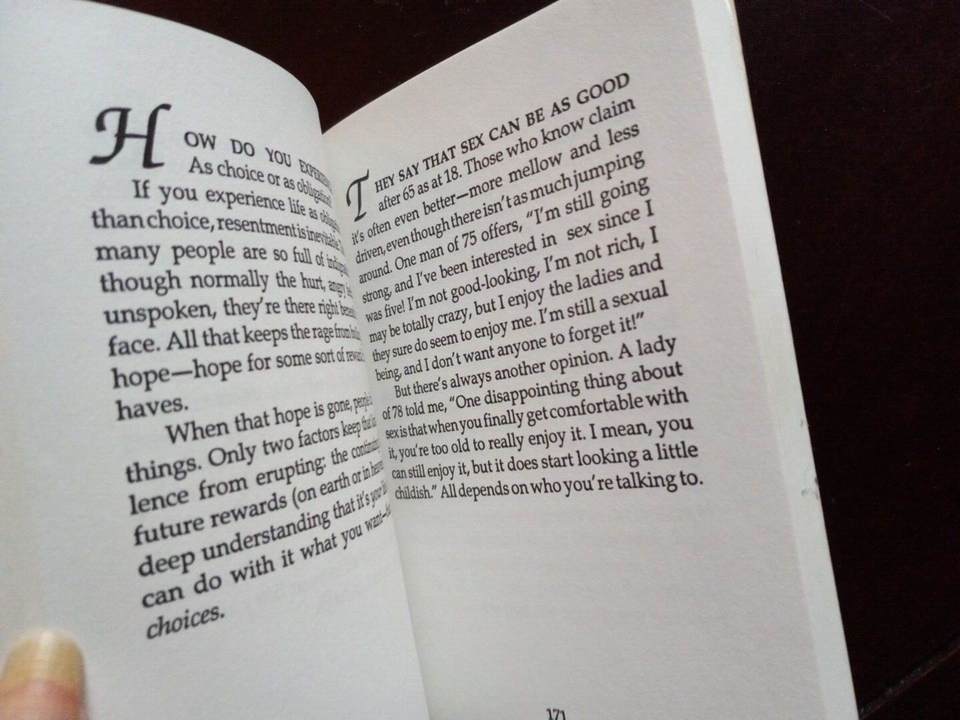 HOW DO YOU
As choice or as obligation
If you experience life as
than choice, resentment is inevitable.
many people are so full of
though normally the hurt, angry
unspoken, they're there right
face. All that keeps the rage from
hope—hope for some sort of
haves.
When that hope is gone,
things. Only two factors keep
lence from erupting: the
future rewards (on earth or in
deep understanding that it's your
can do with it what you want—
choices.
THEY SAY THAT SEX CAN BE AS GOOD
after 65 as at 18. Those who know claim
it's often even better—more mellow and less
driven, even though there isn't as much jumping
around. One man of 75 offers, "I'm still going
strong, and I've been interested in sex since I
was five! I'm not good-looking, I'm not rich, I
may be totally crazy, but I enjoy the ladies and
they sure do seem to enjoy me. I'm still a sexual
being, and I don't want anyone to forget it!"
But there's always another opinion. A lady
of 78 told me, "One disappointing thing about
sex is that when you finally get comfortable with
it, you're too old to really enjoy it. I mean, you
can still enjoy it, but it does start looking a little
childish." All depends on who you're talking to.
171